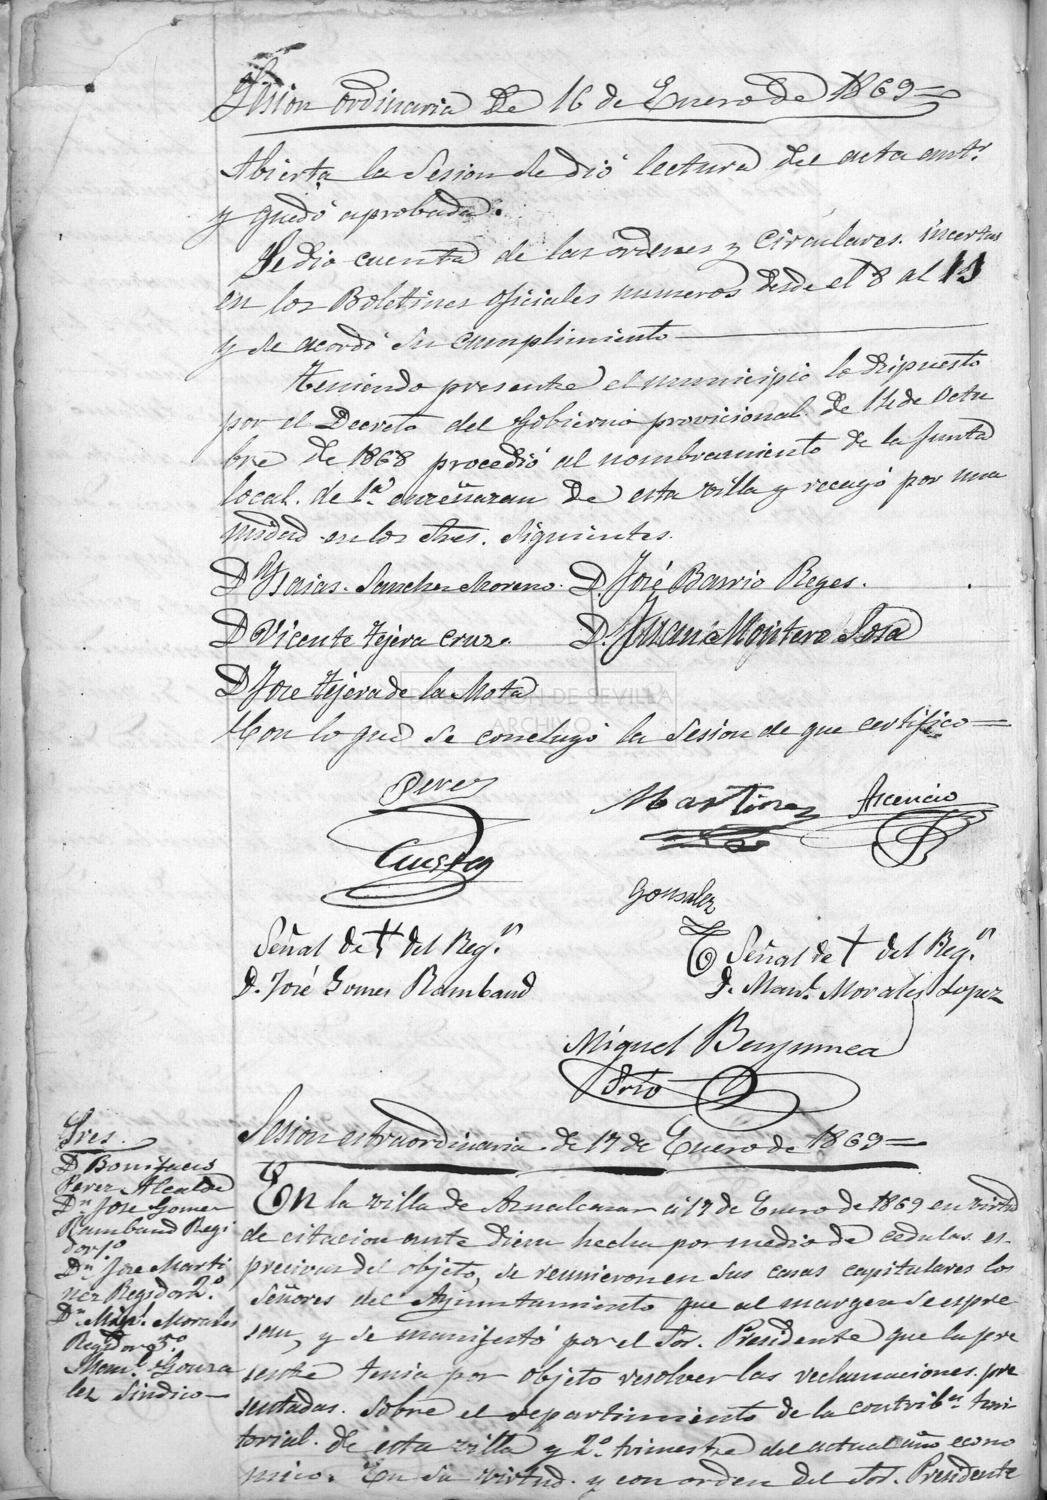 Sesion ordinaria de 16 de Enero de 1869=
Abierta la Sesion se dió lectura del acta antr.
y quedó aprobada.
Se dio cuenta de las órdenes y circulares incertas
en los Boletines oficiales numeros desde el 8 al 14
y se acordó su cumplimiento
Teniendo presente el municipio lo dispuesto
por el Decreto del Gobierno provicional de 14 de Octu
bre de 1868 procedió al nombramiento de la Junta
local de 1ª enseñazan de esta villa y recayó por una
midad en los Sres. Siguientes
D. Ysaias Sanchez Moreno. D. José Barrio Reyes.
D. Vicente Tejera Cruz. D. Juan Montero Sosa
D. Jose Tejera de la Mota
Con lo que se concluyó la Sesion de que certifico=
Perez
Martinez Ascencio
Cuesta
Gonsalez
Señal de † del Regn.
D. José Gomes Rambaud
Señal de † del Regn.
D. Manl. Morales Lopez
Miguel
Srio
Sesion estraordinaria de 17 de Enero de 1869=
Sres.
D. Bonifacio
Perez Alcalde
Dn. Jose Gomez
Rambaud Regi
dor 1º
Dn. Jose Marti
nez Regidor 2º.
Dn. Manl. Morales
Regidor 5º
Manl. Gonza
lez Sindico
En la villa de Aznalcazar á 17 de Enero de 1869 en virtud
de citacion ante diem hecha por medio de cedulas es
precivas del objeto, se reunieron en sus casas capitulares los
Señores del Ayuntamiento que al margen se espre
san, y se manifestó por el Sor. Presidente que la pre
sente tenia por objeto resolver las reclamaciones pre
sentadas sobre el repartimiento de la contribn. terri
torial de esta villa y 2º trimestre del actual año econo
mico. En su virtud y con orden del Sor. Presidente
DIPUTACIÓN DE SEVILLA
ARCHIVO